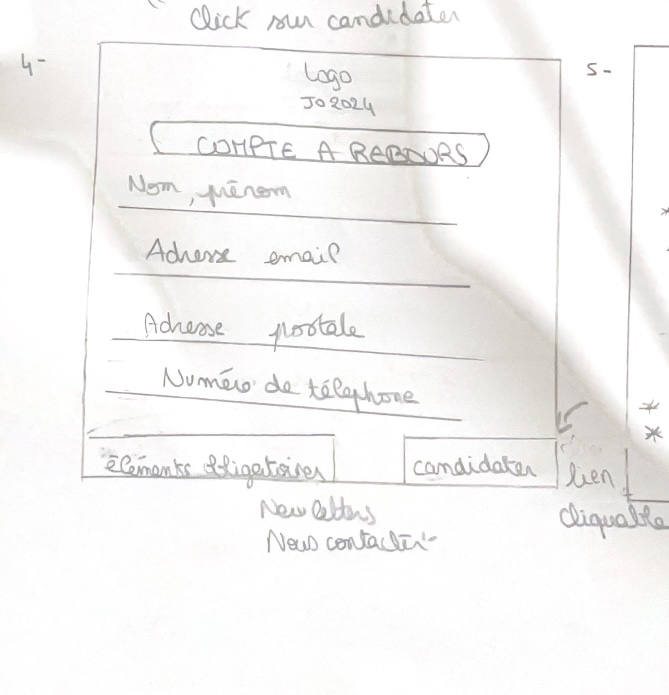 Click sur candidater
4-
5-
Logo
JO 2024
COMPTE A REBOURS
Nom, prénom
Adresse email
Adresse postale
Numéro de téléphone
éléments obligatoires
candidater
lien
cliquable
Newletters
Nous contacter